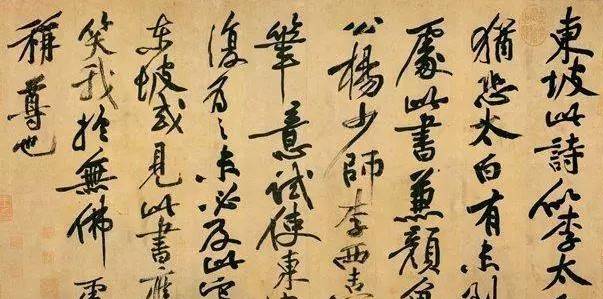 東坡此詩似李太
猶恐太白有未到
處此書兼顏魯
公楊少師李西臺
筆意試使東
復為之未必及此
東坡或見此書應
笑我於無佛
稱尊也